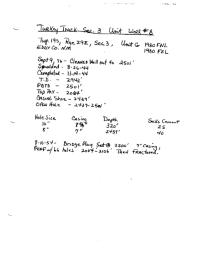 Turkey Track Sec. 3 Unit Well #8
Twp 19S, Rge 29E, Sec 3, Unit G 1980 FNL
Eddy Co. NM 1980 FEL
Sept 9, 76 - Cleaned Well out to 2501'
Spudded - 8-26-44
Completed - 11-14-44
T.D. -
PBTD - 2501'
Top Pay -
Casing Shoe - 2437'
Open Hole - 2437-2501'
Hole Size Casing Depth Sacks Cement
10" 320' 25
8" 7" 2437' 40
Bridge Plug Set @ 2200' 7" Casing,
Perf w/66 holes Then Fractured.